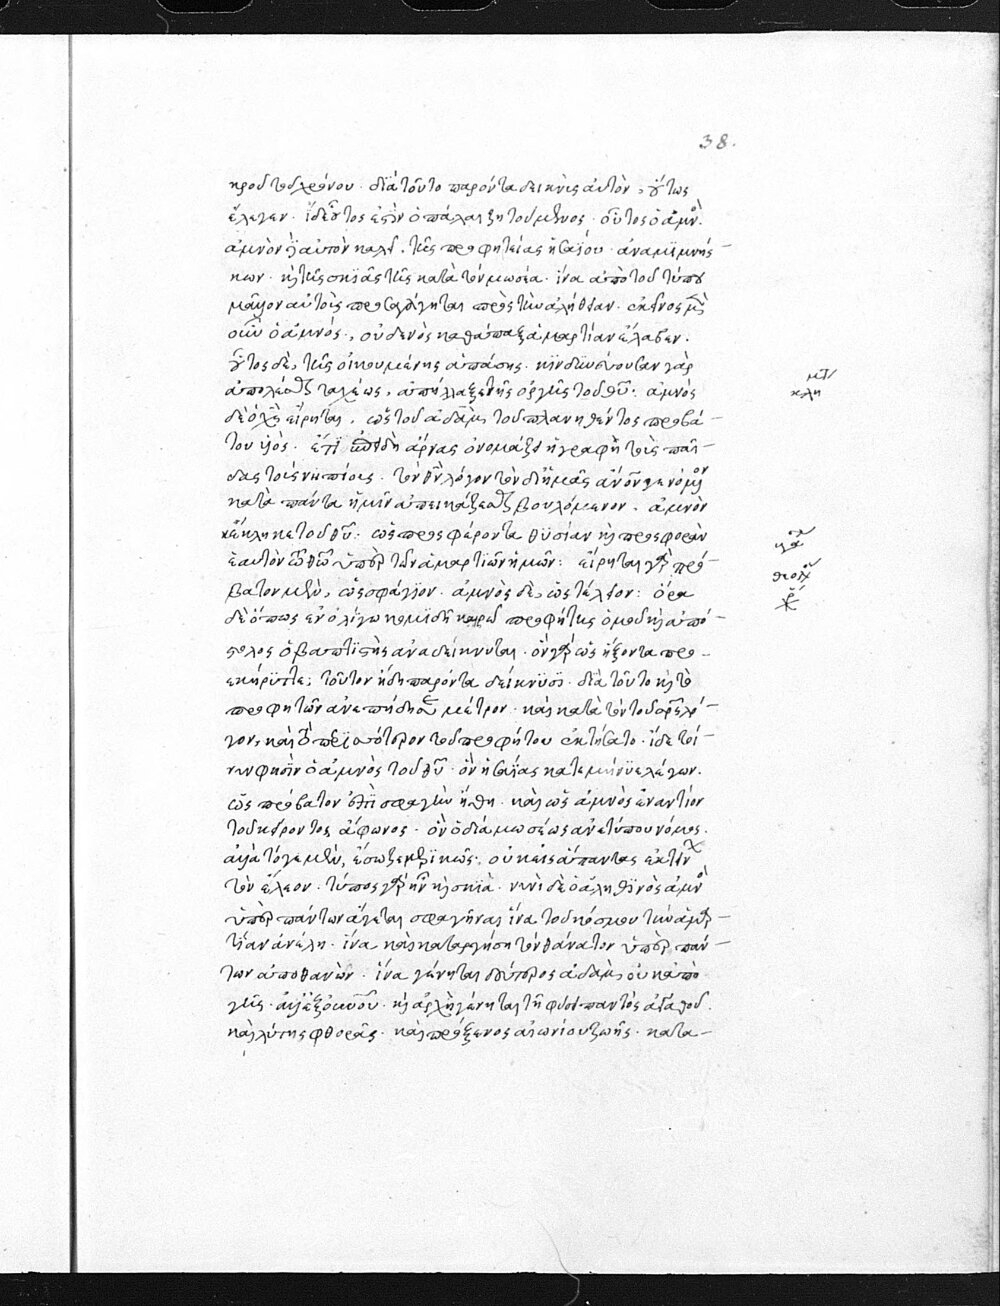 38.
κροῦ τοῦ χρόνου. διὰ τοῦτο παρόντα δεικνὺς αὐτὸν, οὕτως
ἔλεγεν. ἴδε οὗτος ἐστὶν ὁ πάλαι ζητούμενος. οὗτος ὁ ἀμνός.
ἀμνὸν δὲ αὐτὸν καλεῖ. τῆς προφητείας ἡσαΐου ἀναμιμνήσ-
κων. καὶ τῆς σκιᾶς τῆς κατὰ τὸν μωσέα. ἵνα ἀπὸ τοῦ τύπου
μᾶλλον αὐτοῖς προσαγάγηται πρὸς τὴν ἀλήθειαν. ἐκεῖνος μὲν
οὖν ὁ ἀμνός, οὐδενὸς καθάπαξ ἁμαρτίαν ἔλαβεν.
οὗτος δὲ, τῆς οἰκουμένης ἁπάσης. κινδυνεύουσαν γὰρ
ἀπολέσθαι ταχέως, ἀπήλλαξε τῆς ὀργῆς τοῦ θεοῦ: ἀμνὸς
δὲ εἴρηται, ὡς τοῦ ἀδὰμ τοῦ πλανηθέντος προβά-
του υἱός. ἐπειδὴ ἄρνας ὀνομάζει ἡ γραφὴ τοὺς παῖ-
δας τοὺς νηπίους. τὸν θεὸν λόγον τὸν δι' ἡμᾶς ἄνθρωπον γενόμενον
κατὰ πάντα ἡμῖν ἀπεικάζεσθαι βουλόμενον. ἀμνὸν
κέκληκε τοῦ θεοῦ: ὡς προσφέροντα θυσίαν καὶ προσφορὰν
ἑαυτὸν τῷ θεῷ ὑπὲρ τῶν ἁμαρτιῶν ἡμῶν: εἴρηται γὰρ πρό-
βατον μὲν, ὡς σφάγιον. ἀμνὸς δὲ, ὡς τέλειον: ὅρα
δὲ ὅπως ἐν ὀλίγω κομιδῆ καιρῶ προφήτης ὁμοῦ καὶ ἀπό-
στολος ὁ βαπτιστὴς ἀναδείκνυται. ὃν γὰρ ὡς ἥξοντα προ-
εκήρυττε, τοῦτον ἤδη παρόντα δείκνυσι. διὰ τοῦτο καὶ τὸ
προφητῶν ἀνεπήδησε μέτρον. καὶ κατὰ τὸν τοῦ σωτῆρος λό-
γον, καὶ τὸ περισσότερον τοῦ προφήτου ἐκτήσατο. ἴδε τοί-
νυν φησὶν ὁ ἀμνὸς τοῦ θεοῦ. ὃν ἡσαΐας κατεμήνυε λέγων.
ὡς πρόβατον ἐπὶ σφαγὴν ἤχθη. καὶ ὡς ἀμνὸς ἐναντίον
τοῦ κείροντος ἄφωνος. ὃν ὁ διὰ μωσέως ἀνετύπου νόμος.
ἀλλὰ τότε μὲν, ἔσωζε μερικῶς, οὐκ εἰς ἅπαντας ἐκτείνων
τὸν ἔλεον. τύπος γὰρ ἦν καὶ σκιά. νυνὶ δὲ ὁ ἀληθινὸς ἀμνὸς
ὑπὲρ πάντων ἄγεται σφαγῆναι ἵνα τοῦ κόσμου τὴν ἁμαρ-
τίαν ἀνέλη. ἵνα καὶ καταργήση τὸν θάνατον ὑπὲρ πάν-
των ἀποθανών. ἵνα γένηται δεύτερος ἀδὰμ, οὐκ ἀπὸ
γῆς. ἀλλ' ἐξ οὐρανοῦ. καὶ ἀρχὴ γένηται τῆ φύσει παντὸς ἀγαθοῦ.
καὶ λύσις φθορᾶς. καὶ πρόξενος αἰωνίου ζωῆς. κατα-